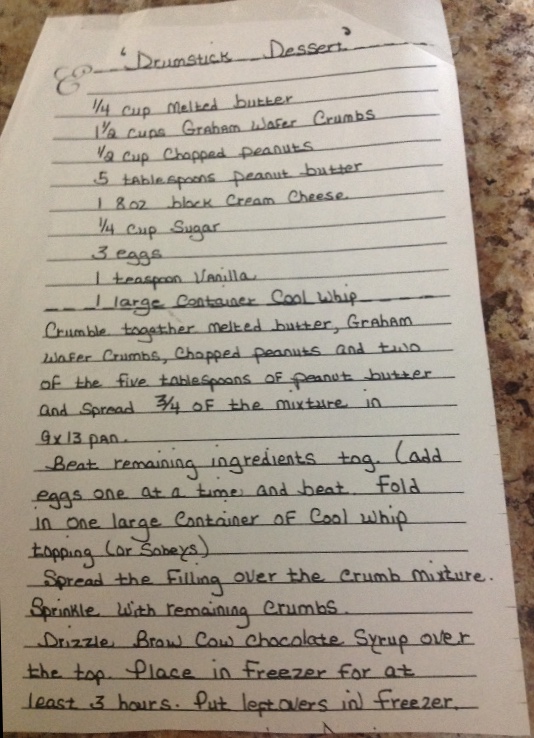 "Drumstick Dessert"
1/4 cup melted butter
1 1/2 cups Graham Wafer Crumbs
1/2 cup Chopped peanuts
5 tablespoons peanut butter
1 8oz block Cream Cheese.
1/4 cup Sugar
3 eggs
1 teaspoon Vanilla
1 large Container Cool Whip
Crumble together melted butter, Graham
Wafer Crumbs, Chopped peanuts and two
of the five tablespoons of peanut butter
and Spread 3/4 of the mixture in
9x13 pan.
Beat remaining ingredients tog. (add
eggs one at a time and beat. Fold
in one large Container of Cool Whip
topping (or Sobeys)
Spread the Filling over the crumb mixture.
Sprinkle With remaining Crumbs.
Drizzle Brow Cow Chocolate Syrup over
the top. Place in Freezer for at
least 3 hours. Put leftovers in Freezer.